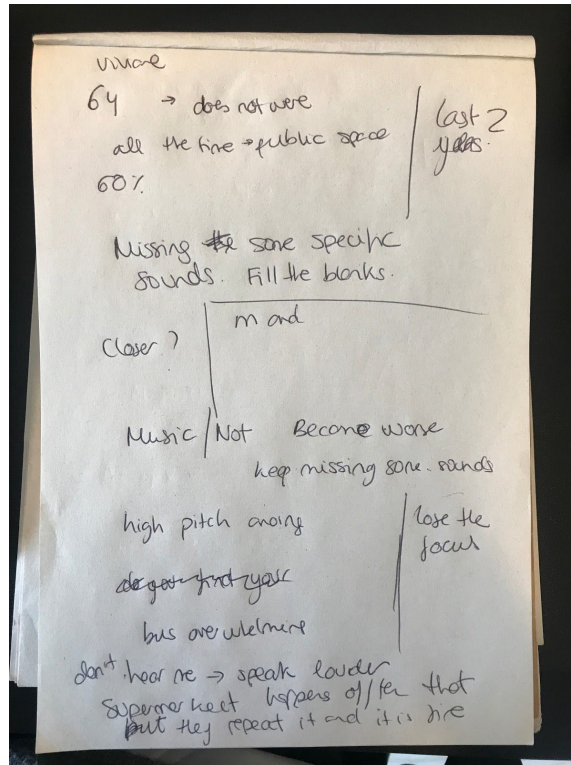 64 → does not were
all the time → public space
60%
last 2
years.
Missing some specific
sounds. Fill the blanks.
Closer?
m and
Music / Not Become worse
keep missing some sounds
high pitch
lose the
focus
bus overwhelming
don't hear me → speak louder
Supermarket happens often that
but they repeat it and it is fine